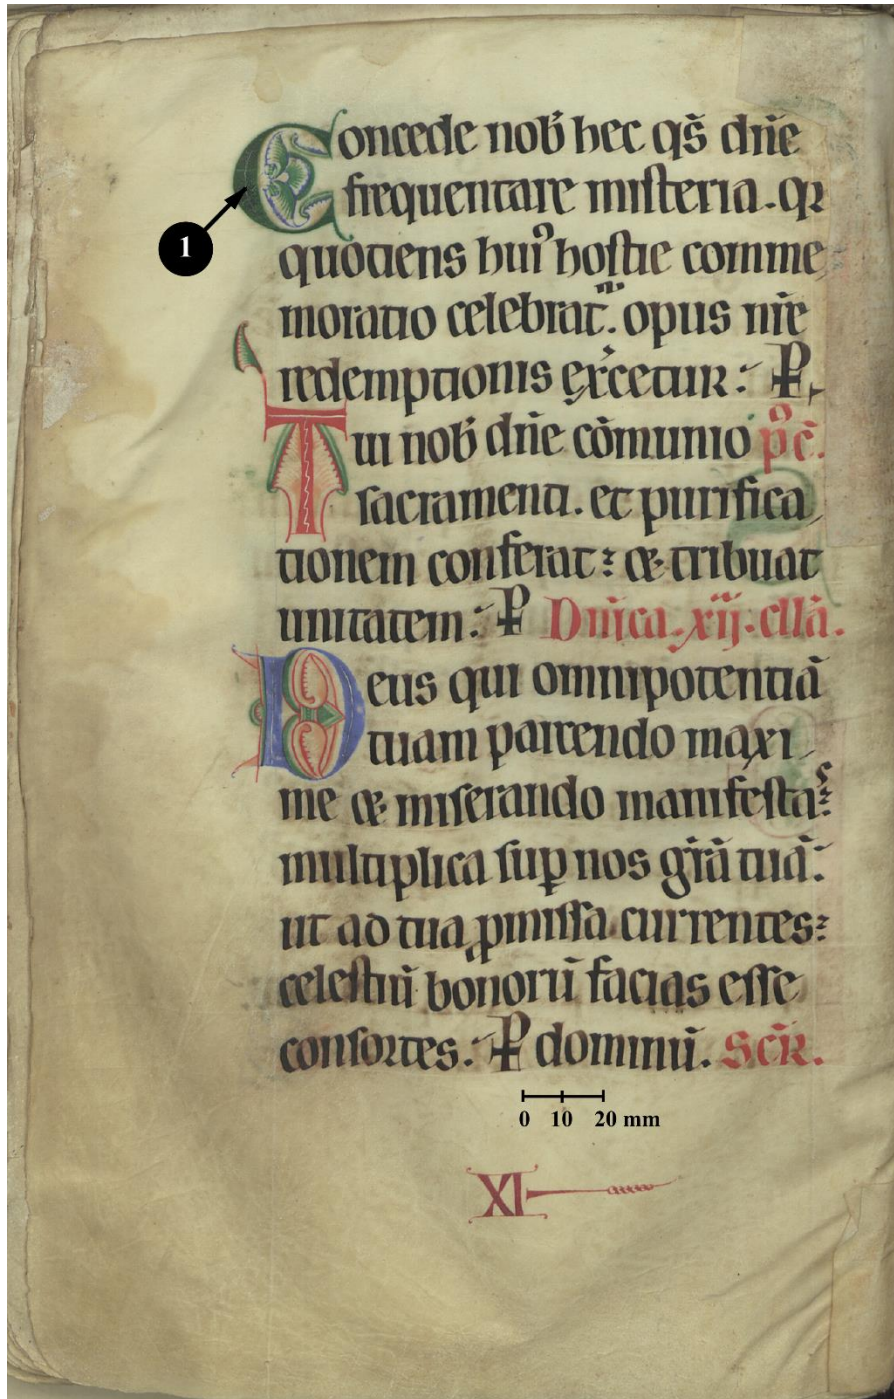 Concede nob̄ hec qs̄ dn̄e
frequentare misteria. qꝛ
quotiens huiꝰ hostie comme
moratio celebrat᷑. opus nr̄e
redemptionis exercetur: ꝑ
Tui nob̄ dn̄e cōmunio p̊c̄.
sacramenti. et purifica
tionem conferat: & tribuat
unitatem: ꝑ Dn̄ica. xij. collā.
Deus qui omnipotentiā
tuam parcendo maxi
me & miserando manifestas:
multiplica suꝑ nos gr̄ā tuā:
ut ad tua ꝓmissa currentes:
celestiū bonorū facias esse
consortes: ꝑ dominū. Scr̄.
XI
1
0 10 20 mm